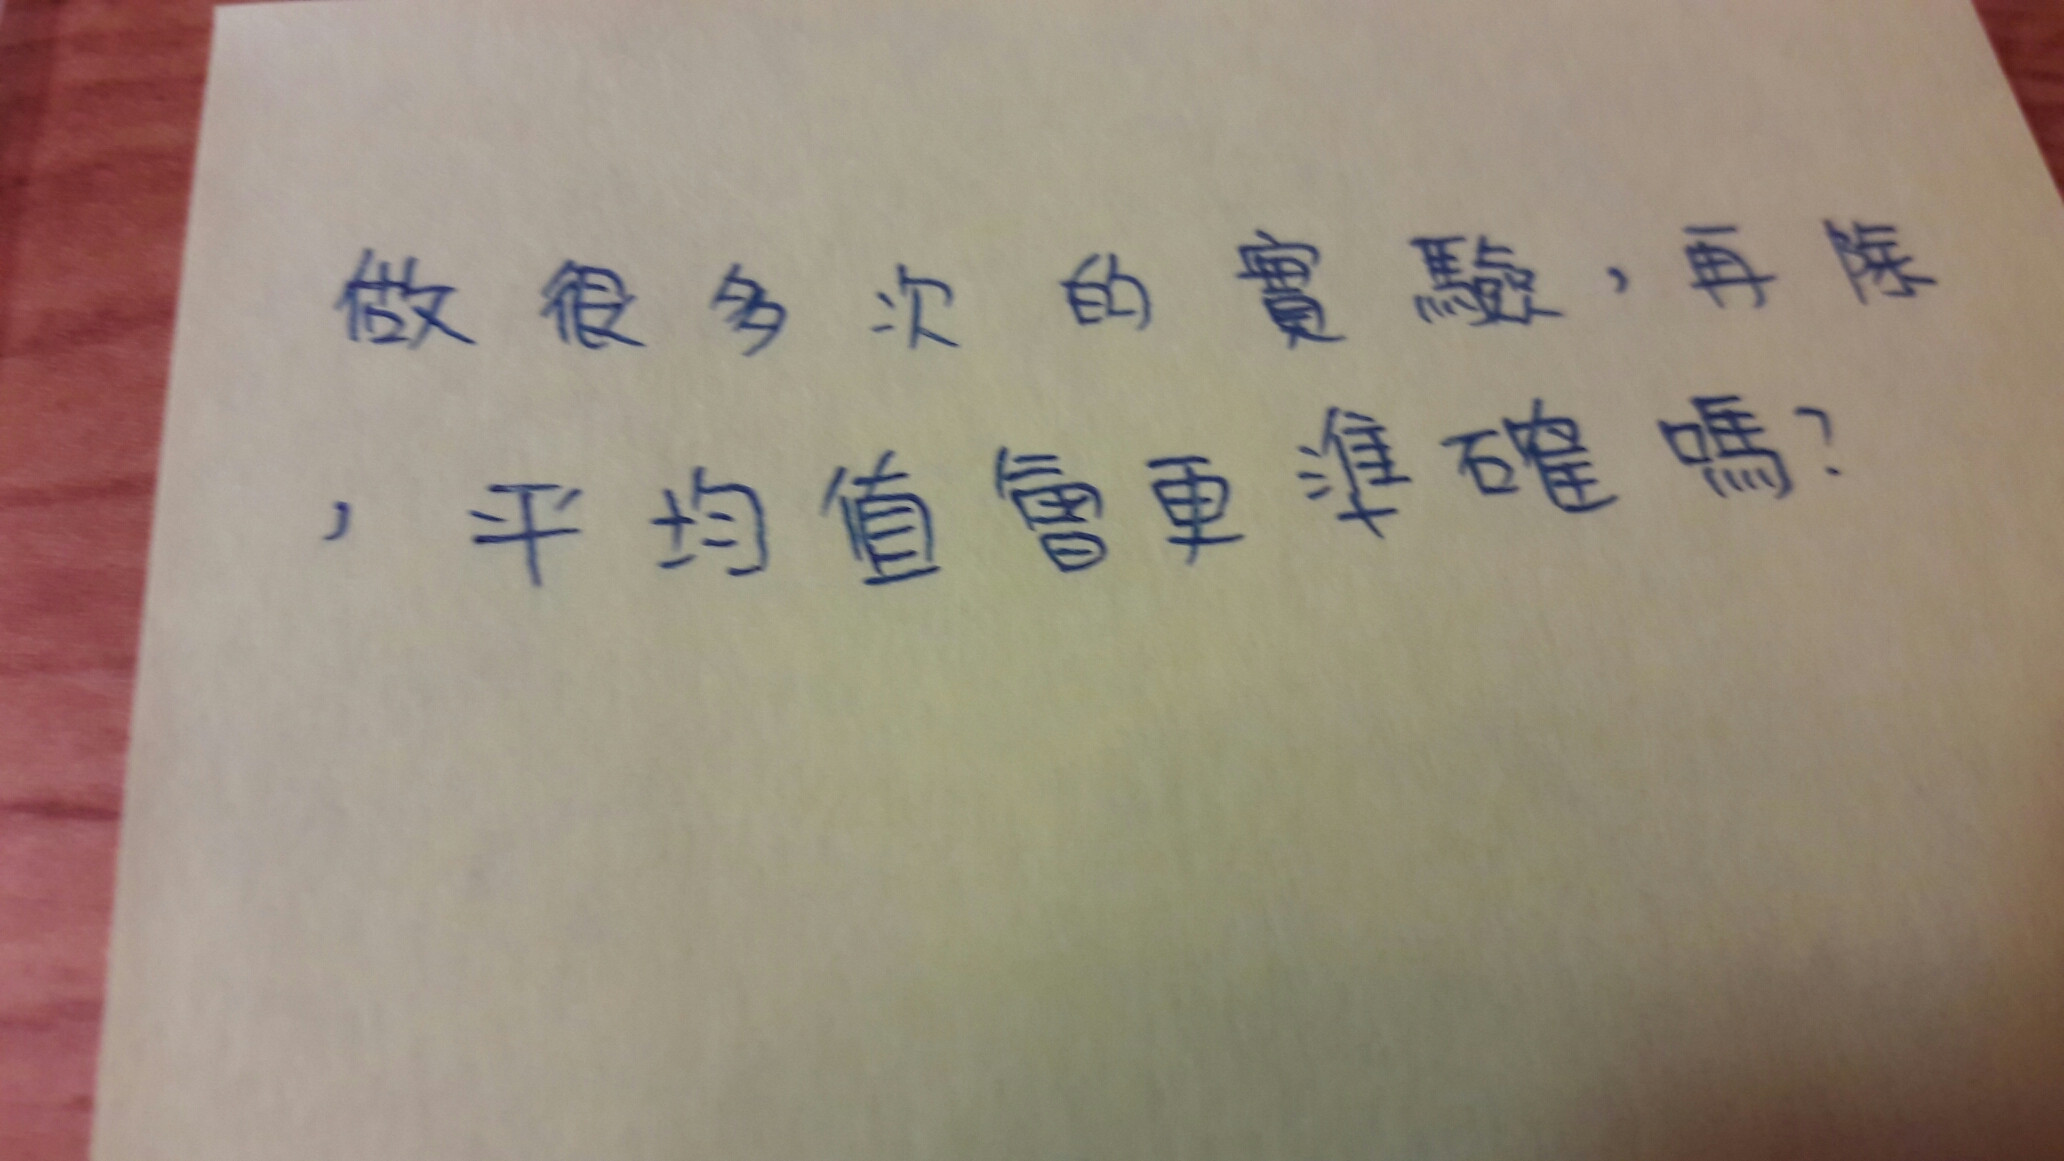 做很多次的實驗，再除
，平均值會更準確嗎？